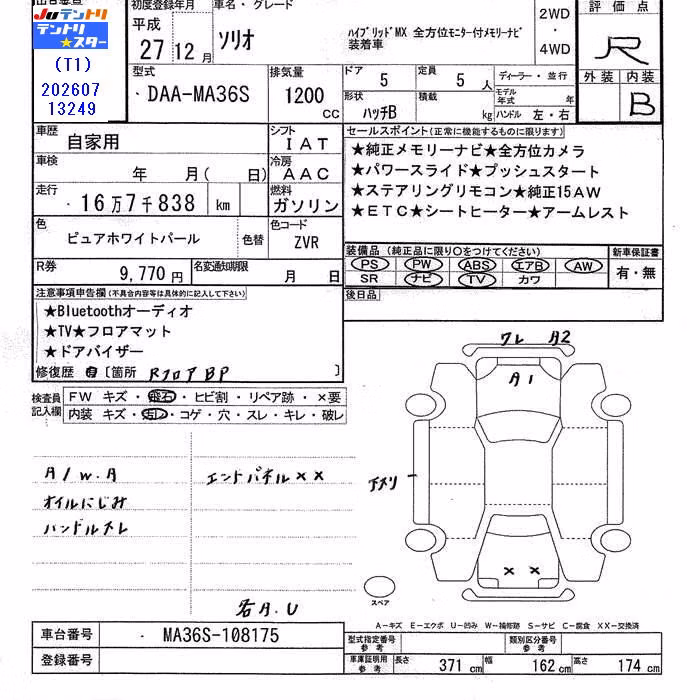 Juテントリ
テントリ
★スター
(T1)
202607
13249
初度登録年月
平成
27 12 月
車名・グレード
ソリオ
ﾊｲﾌﾞﾘｯﾄﾞMX 全方位ﾓﾆﾀｰ付ﾒﾓﾘｰﾅﾋﾞ
装着車
2WD
・
4WD
評価点
R
外装 内装
B
型式
DAA-MA36S
排気量
1200
CC
ドア 5
定員 5 人
ディーラー・並行
形状 ハッチB
積載 kg
モデル年式 年
ハンドル 左・右
車歴 自家用
シフト IAT
車検 年 月( 日)
冷房 AAC
走行 16万7千838 km
燃料 ガソリン
色 ピュアホワイトパール
色替
色コード ZVR
R券 9,770円
名変通知期限 月 日
セールスポイント(正常に機能するものに限ります)
★純正メモリーナビ★全方位カメラ
★パワースライド★プッシュスタート
★ステアリングリモコン★純正15AW
★ETC★シートヒーター★アームレスト
装備品(純正品に限り○をつけてください)
PS PW ABS エアB AW
SR ナビ TV カワ
新車保証書
有・無
後日品
注意事項申告欄(不具合内容等は具体的に記入して下さい)
★Bluetoothオーディオ
★TV★フロアマット
★ドアバイザー
修復歴 有 [箇所 RフロアBP ]
検査員記入欄
FW キズ・飛石・ヒビ割・リペア跡・×要
内装 キズ・汚レ・コゲ・穴・スレ・キレ・破レ
A/W.A
オイルにじみ
ハンドルスレ
エンドパネル××
各A.U
ワレ A2
A1
× ×
スペア
A-キズ E-エクボ U-凹み W-補修跡 S-サビ C-腐食 XX-交換済
車台番号 MA36S-108175
登録番号
型式指定番号 参考
類別区分番号 参考
車庫証明用 参考
長さ 371 cm 幅 162 cm 高さ 174 cm